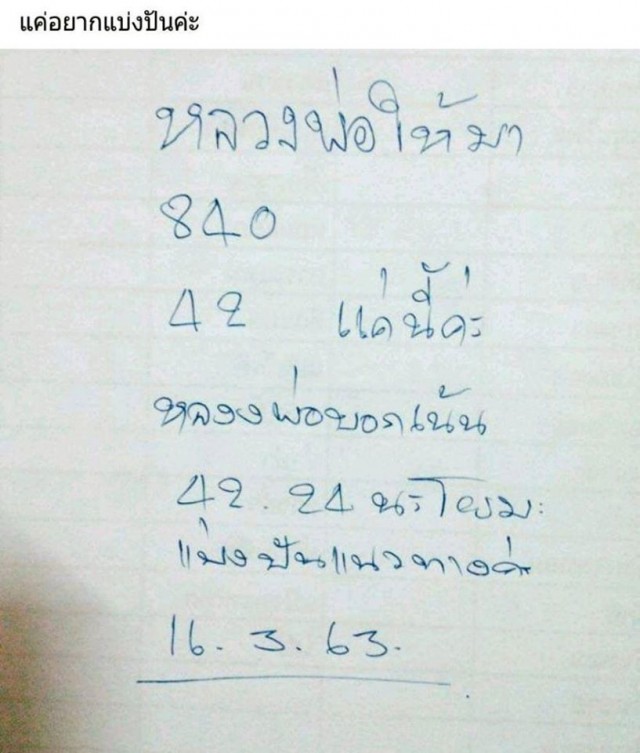 แค่อยากแบ่งปันค่ะ
หลวงพ่อให้มา
840
42 แค่นี้ค่ะ
หลวงพ่อบอกเน้น
42.24 นะโยมะ
แบ่งปันแนวทางค่ะ
16.3.63.